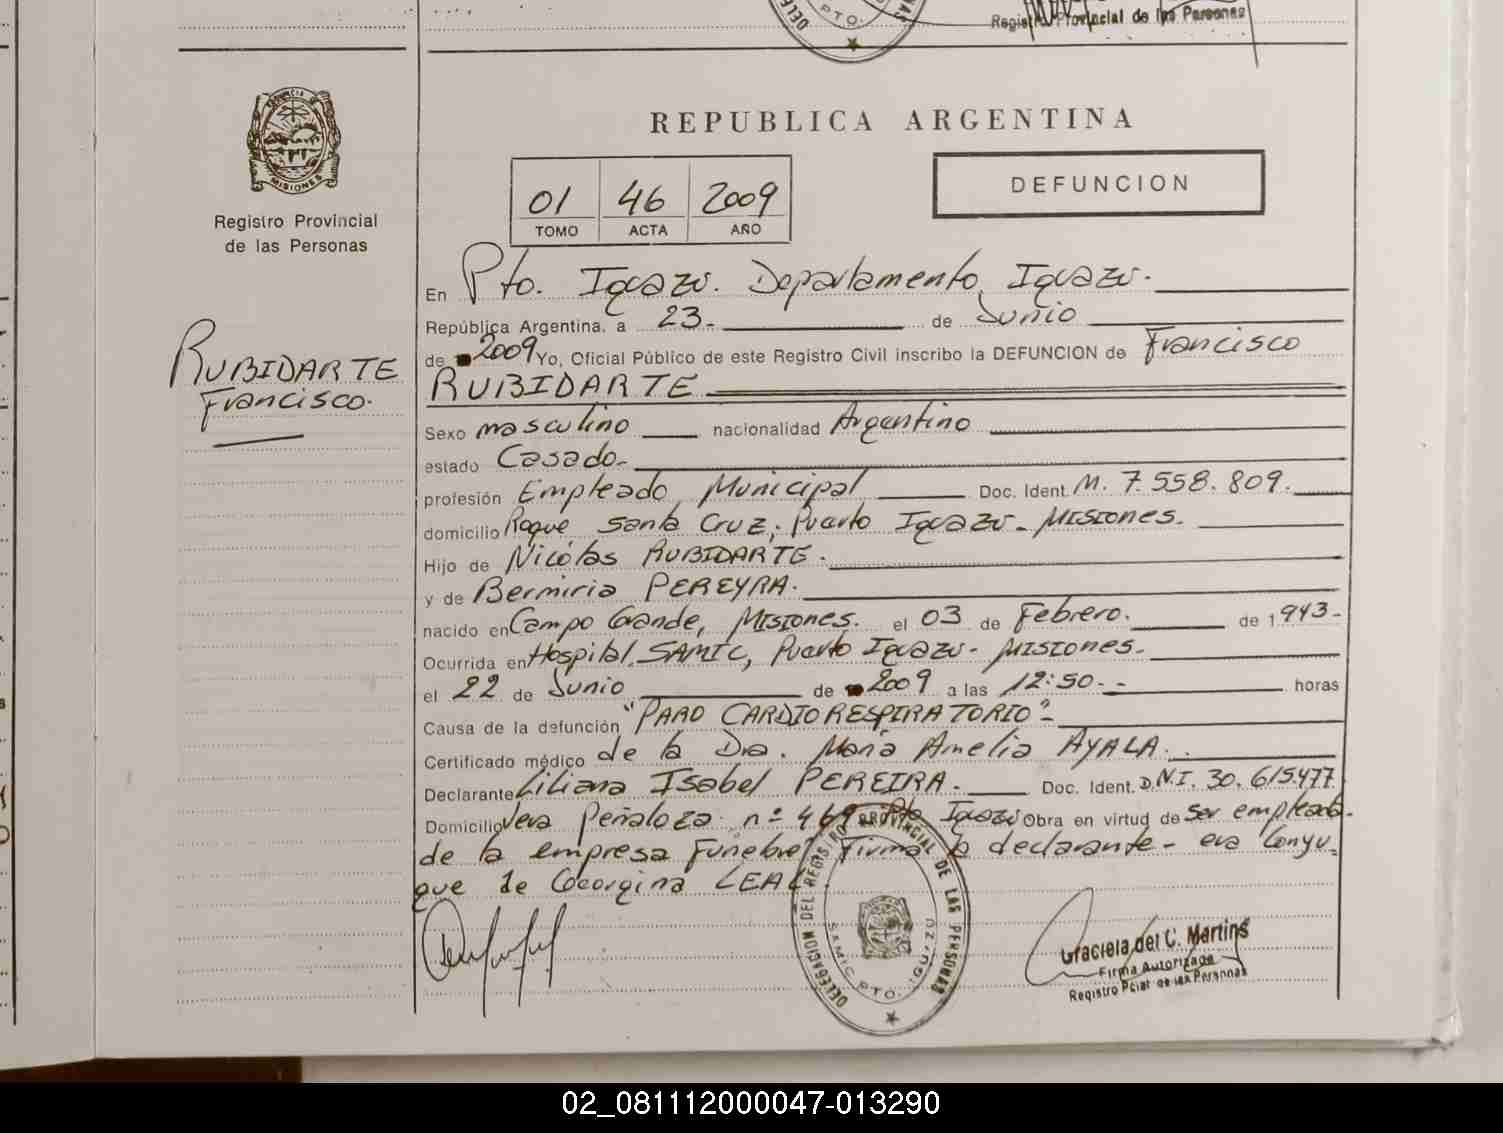 PTO.
Registro Provincial de las Personas
PROVINCIA DE
MISIONES
Registro Provincial
de las Personas
RUBIDARTE
Francisco.
REPUBLICA ARGENTINA
01 46 2009
TOMO ACTA AÑO
DEFUNCION
En Pto. Iguazu. Departamento Iguazu.
República Argentina, a 23- de Junio
de 2009 Yo, Oficial Público de este Registro Civil inscribo la DEFUNCION de Francisco
RUBIDARTE
Sexo masculino nacionalidad Argentino
estado Casado-
profesión Empleado Municipal Doc. Ident. M. 7.558.809.
domicilio Roque Santa Cruz, Puerto Iguazu- MISIONES.
Hijo de Nicólas RUBIDARTE.
y de Bermiria PEREYRA.
nacido en Campo Grande, MISIONES. el 03 de Febrero. de 1943-
Ocurrida en Hospital SAMIC, Puerto Iguazu- MISIONES-
el 22 de Junio de 2009 a las 12:50-- horas
Causa de la defunción "PARO CARDIORESPIRATORIO"-
Certificado médico de la Dra. María Amelia AYALA.
Declarante Liliana Isabel PEREIRA. Doc. Ident. D.N.I. 30.615.477
Domicilio Vera Peñaloza nº 469 Pto Iguazu Obra en virtud de ser empleada-
de la empresa Funebre, firma la declarante- era Conyu-
gue de Georgina LEAL.
DELEGACION DEL REGISTRO PROVINCIAL DE LAS PERSONAS
SAMIC. PTO. IGUAZU
Graciela del C. Martins
Firma Autorizada
Registro Pcial de las Personas
02_081112000047-013290